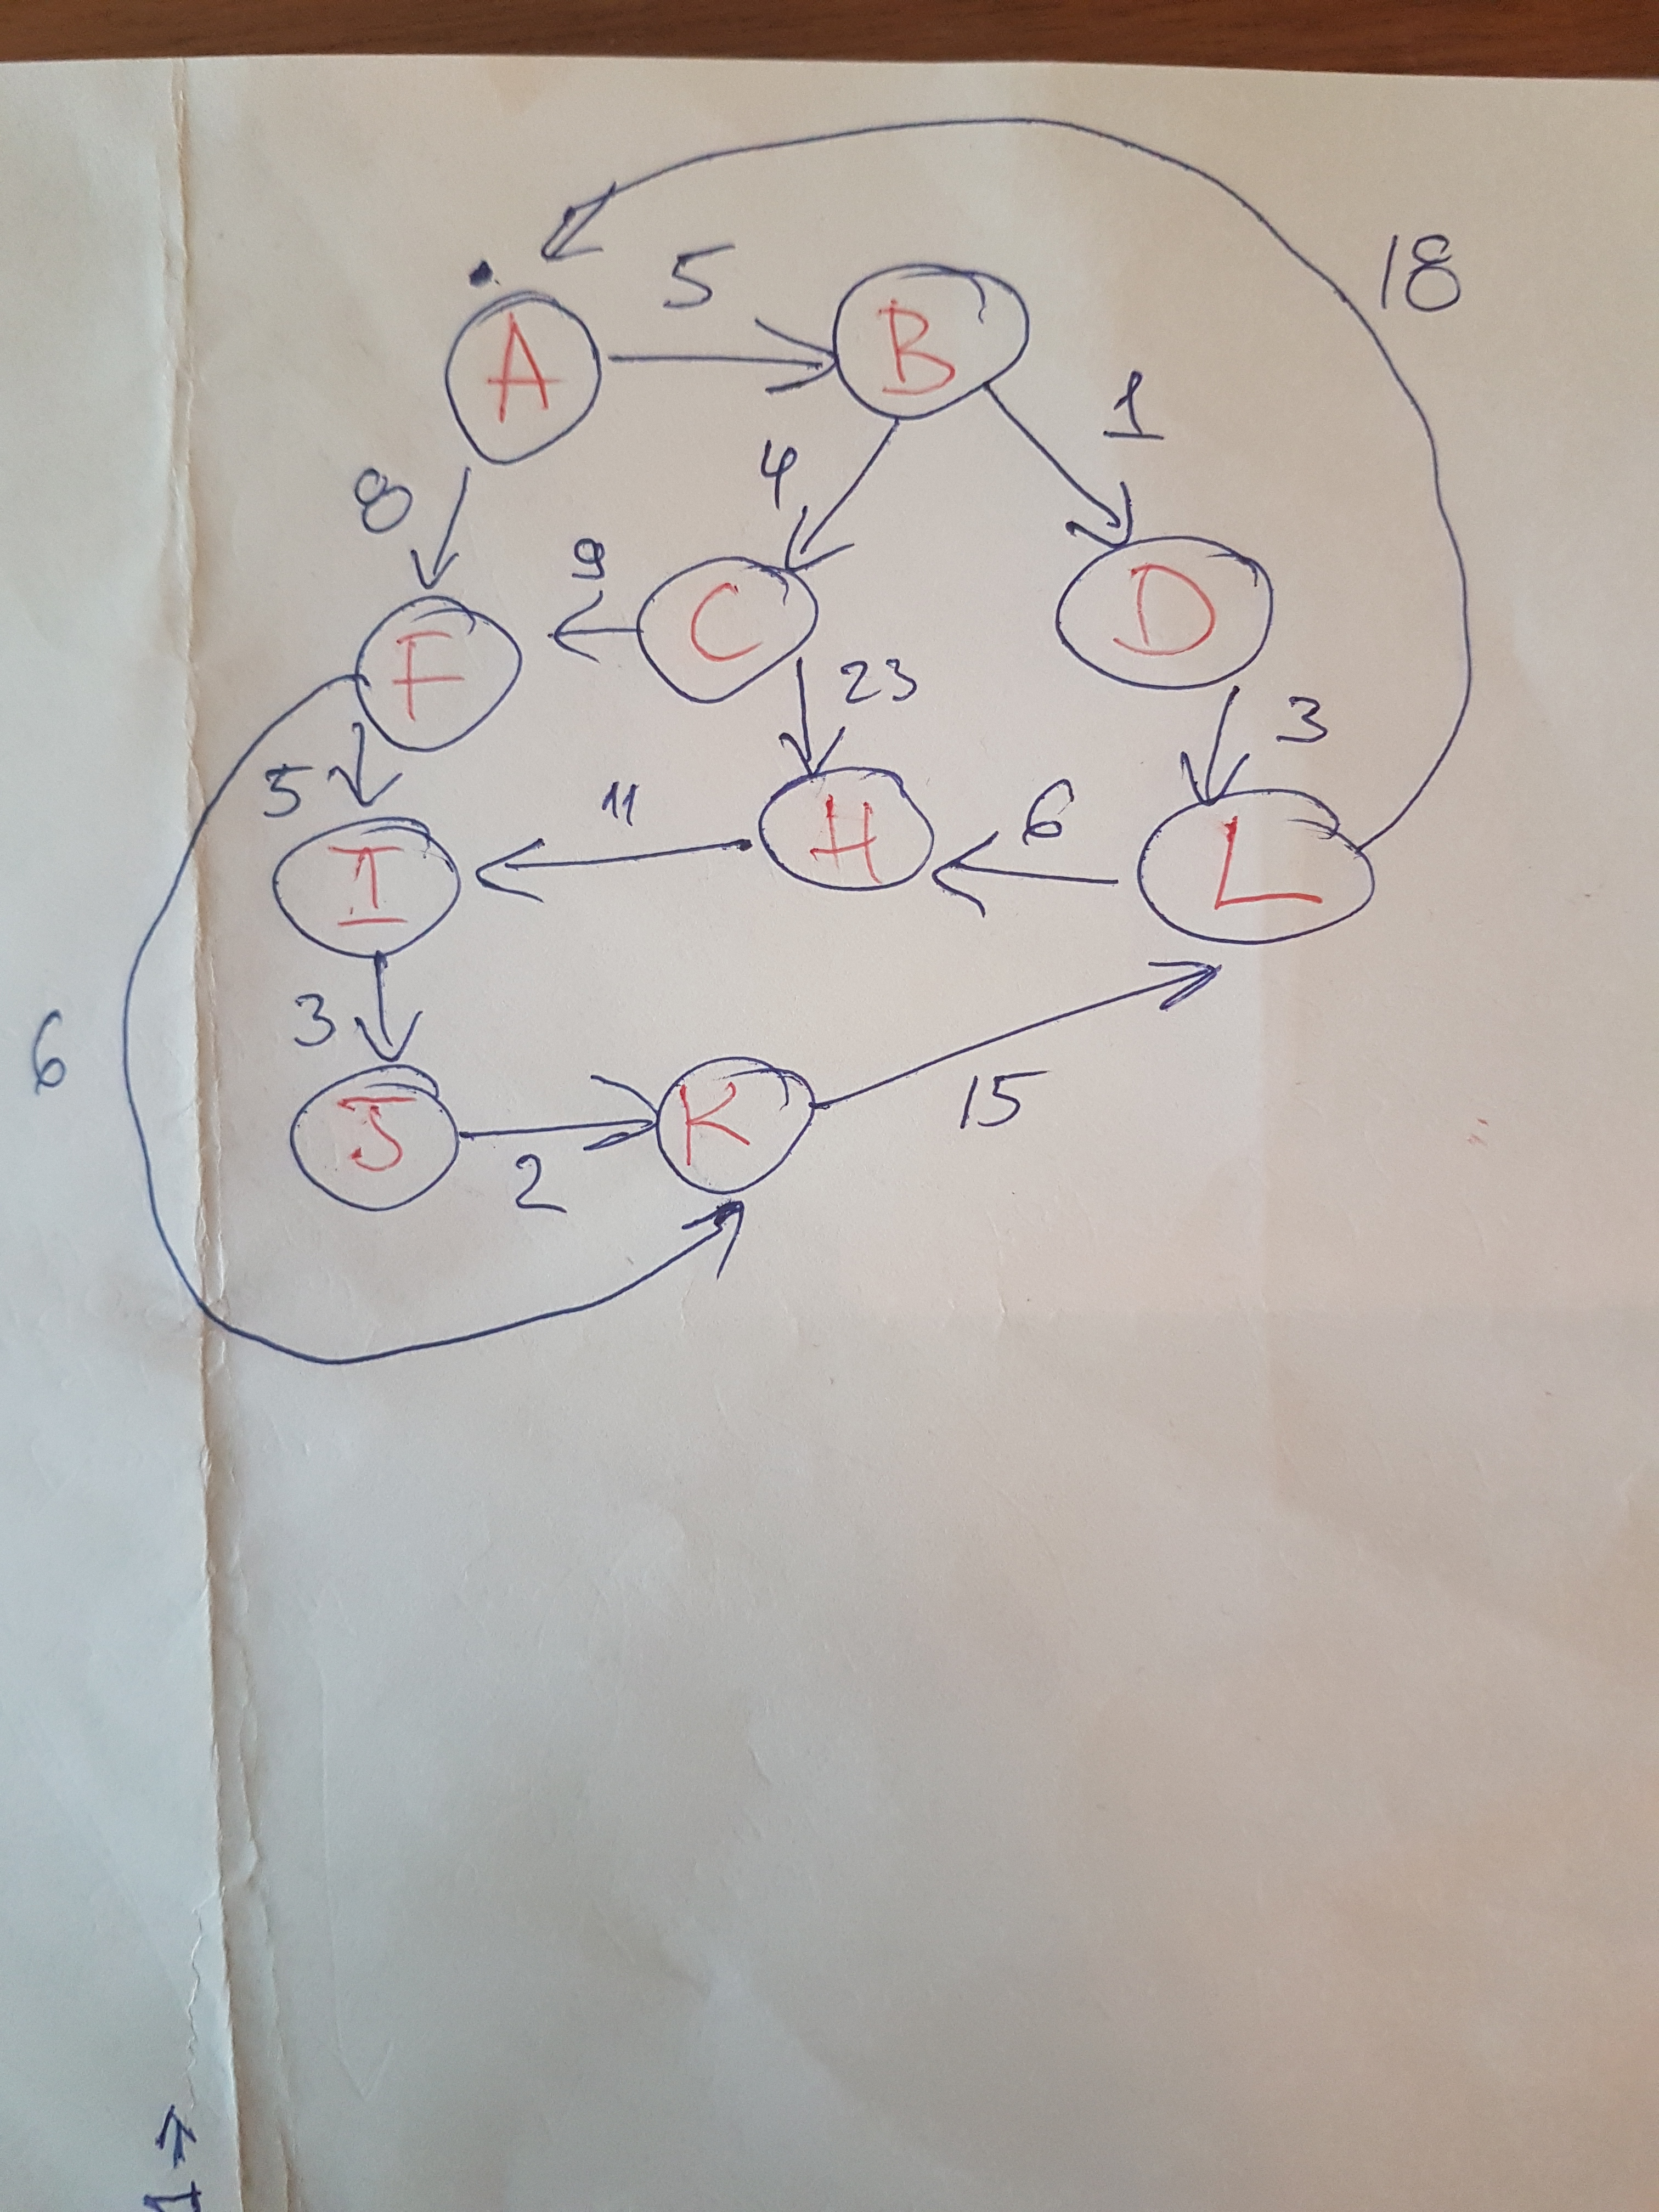 18
5
A
B
1
4
8
9
C
D
F
23
3
5
11
H
6
L
I
3
6
J
K
15
2